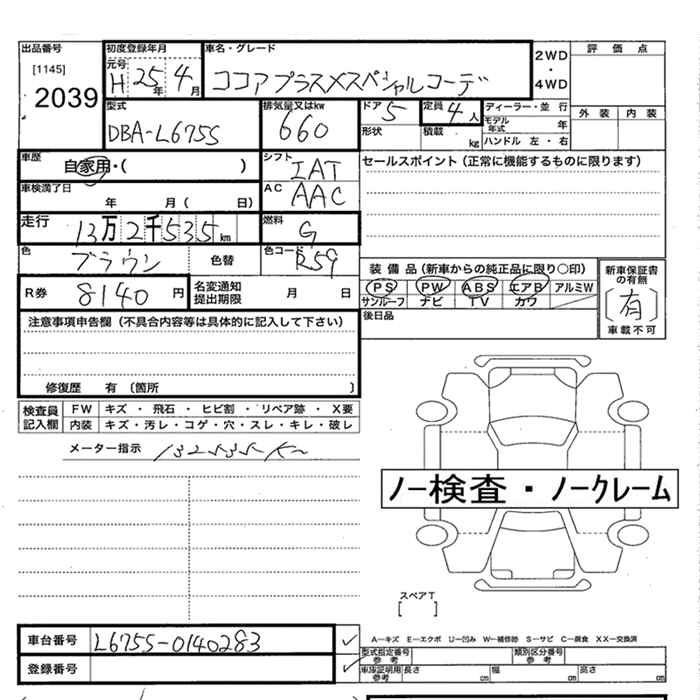 出品番号 初度登録年月 車名・グレード 2WD・4WD 評価点
[1145] 元号
2039 H 25年 4月 ココアプラスXスペシャルコーデ
型式 排気量又はkw ドア 5 定員 4人 ディーラー・並行 外装 内装
DBA-L675S 660 形状 積載 kg モデル年式 年
ハンドル 左・右
車歴 自家用・( ) シフト IAT セールスポイント(正常に機能するものに限ります)
車検満了日 年 月( 日) AC AAC
走行 13万2千535km 燃料 G
色 ブラウン 色替 色コード R59
装備品(新車からの純正品に限り○印) 新車保証書の有無
R券 8140円 名変通知提出期限 月 日 PS PW ABS エアB アルミW (有)
サンルーフ ナビ TV カワ 車載不可
注意事項申告欄(不具合内容等は具体的に記入して下さい) 後日品
修復歴 有 〔箇所 〕
検査員記入欄 FW キズ・飛石・ヒビ割・リペア跡・X要
内装 キズ・汚レ・コゲ・穴・スレ・キレ・破レ
メーター指示 132535K
ノー検査・ノークレーム
スペアT
[ ]
車台番号 L675S-0140283
A−キズ E−エクボ U−凹み W−補修跡 S−サビ C−腐食 XX−交換済
登録番号 型式指定番号 参考 類別区分番号 参考
車庫証明用 参考 長さ cm 幅 cm 高さ cm